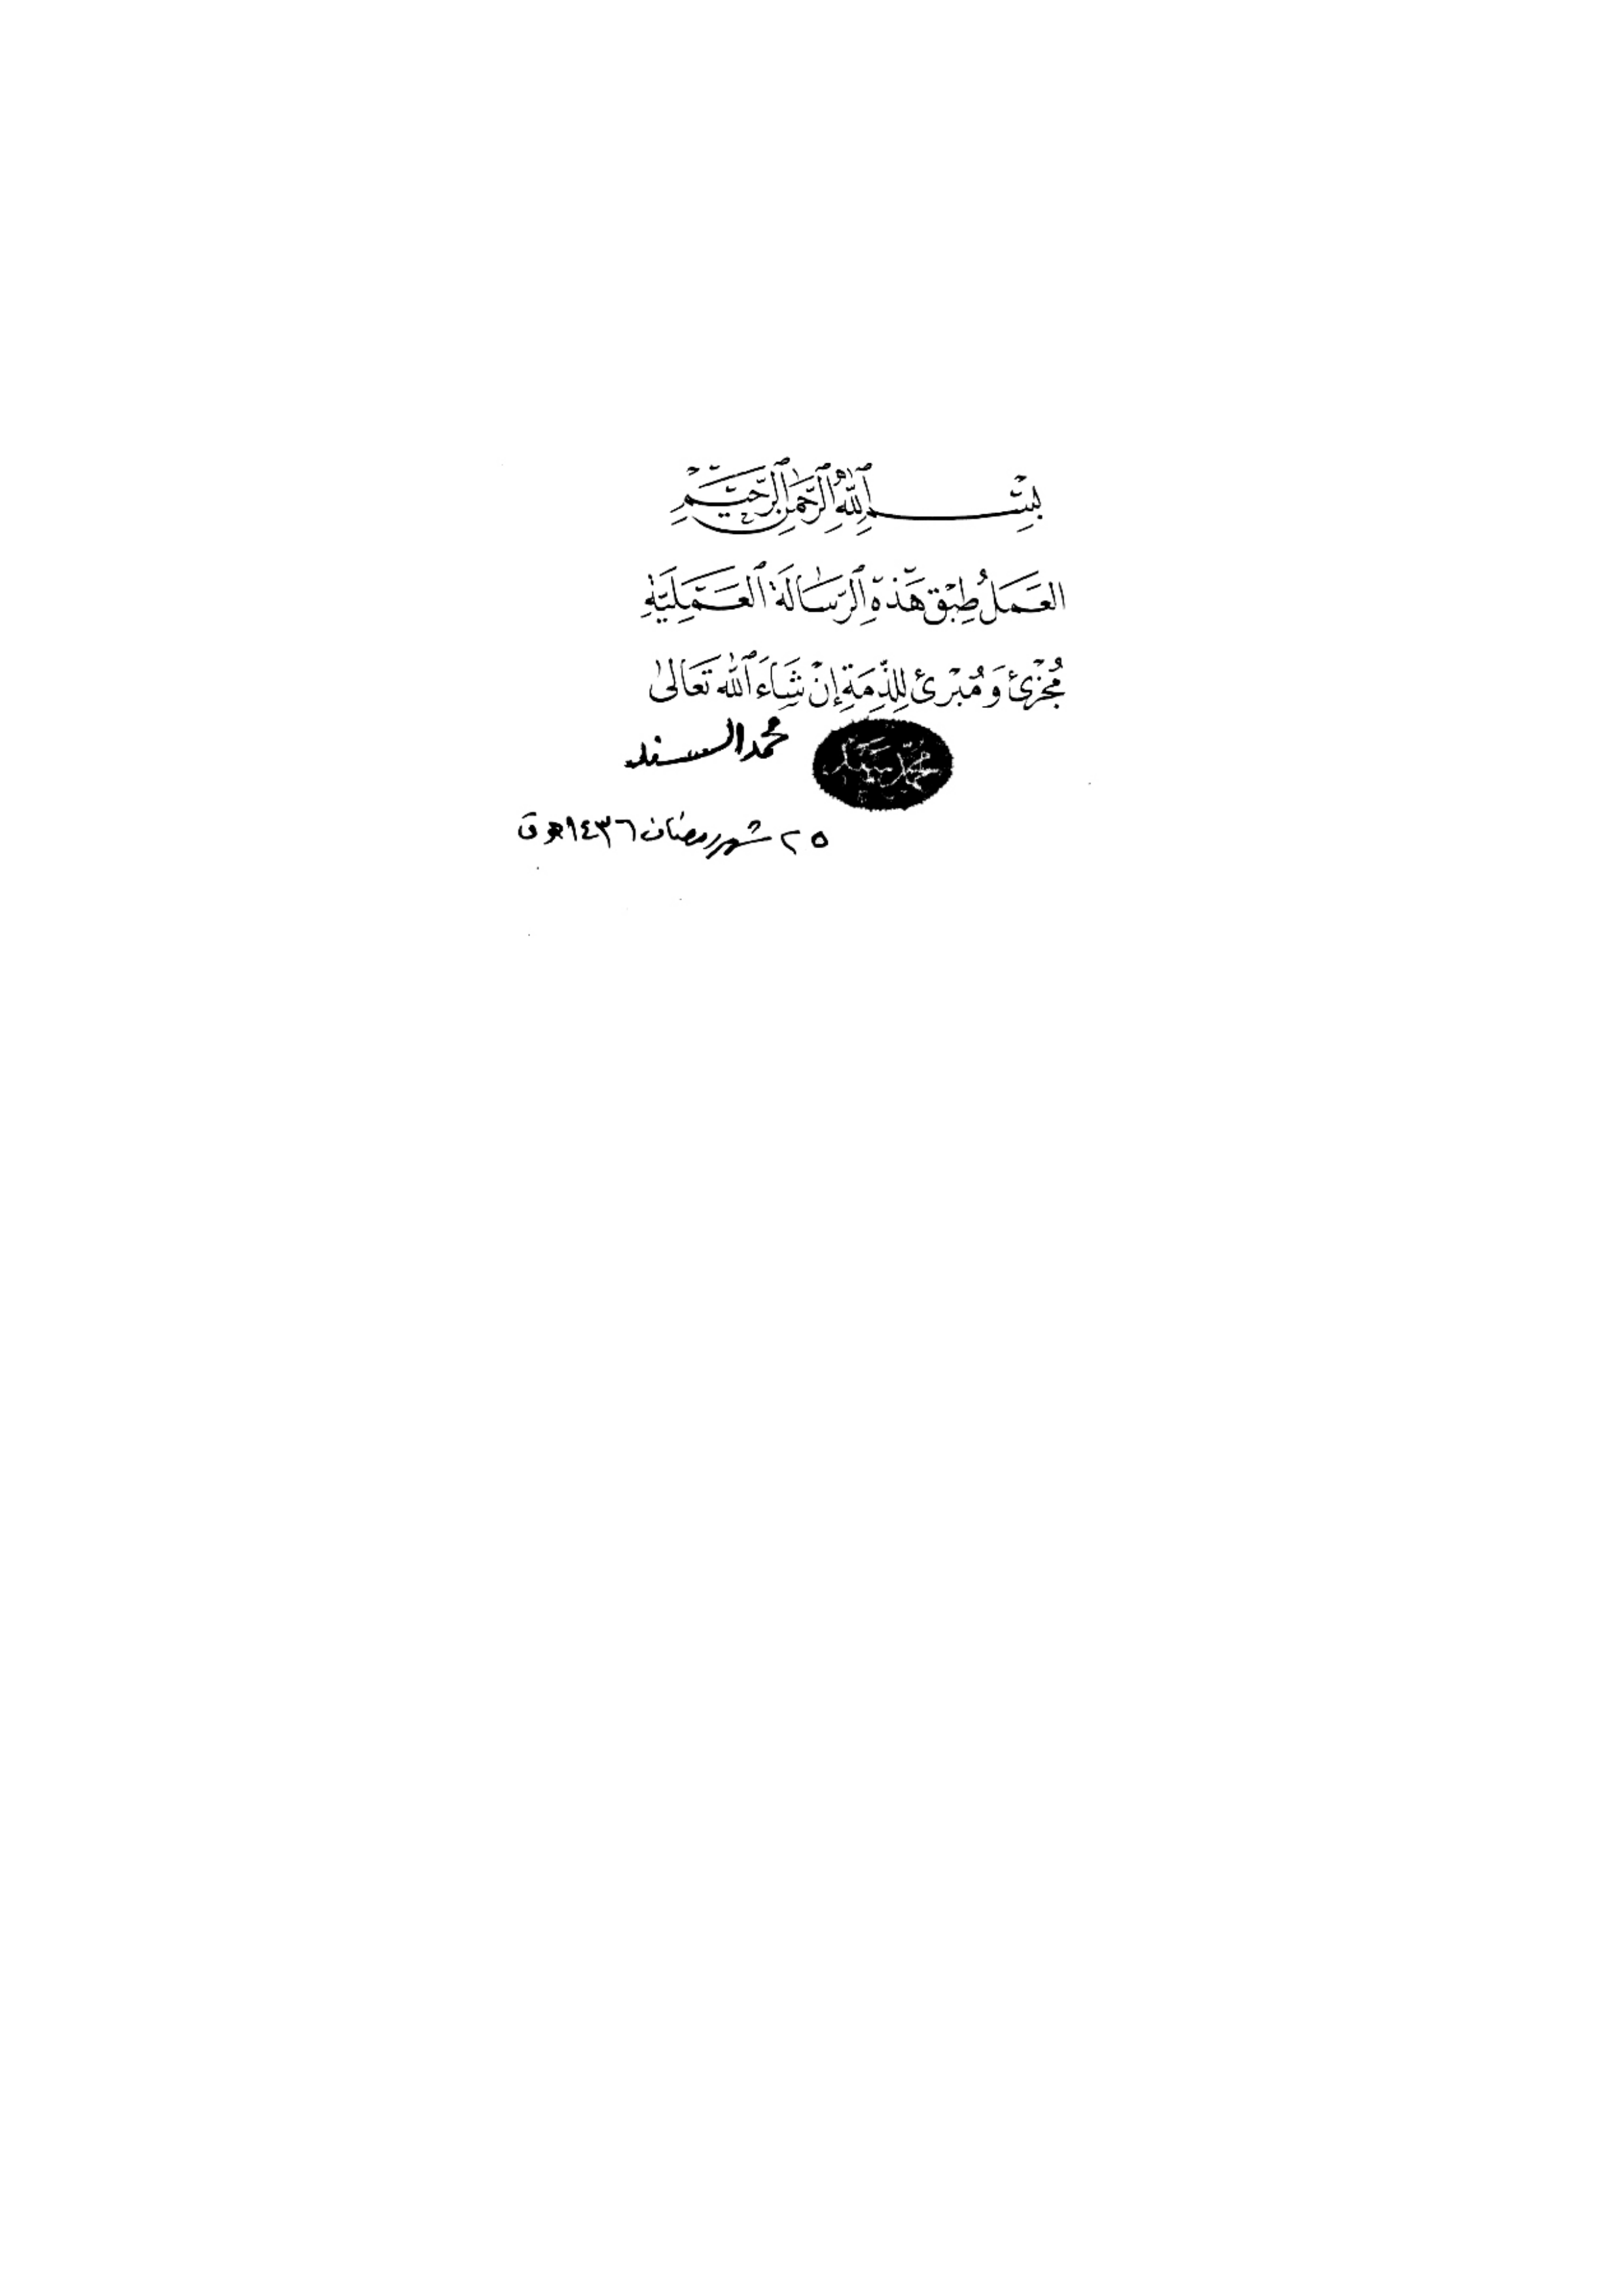 بِسْمِ ٱللَّٰهِ ٱلرَّحْمَٰنِ ٱلرَّحِيمِ
العَمَلُ طِبْقِ هَذِهِ ٱلرِّسَالَةِ ٱلْعَمَلِيَّةِ
مُجْزِئ وَ مُبْرِئ لِلذِّمَّةِ إِنْ شَاءَ ٱللَّٰه تَعَالىٰ
محمد السند
٢٥ شهر رمضان ١٤٣٦ هـ ق